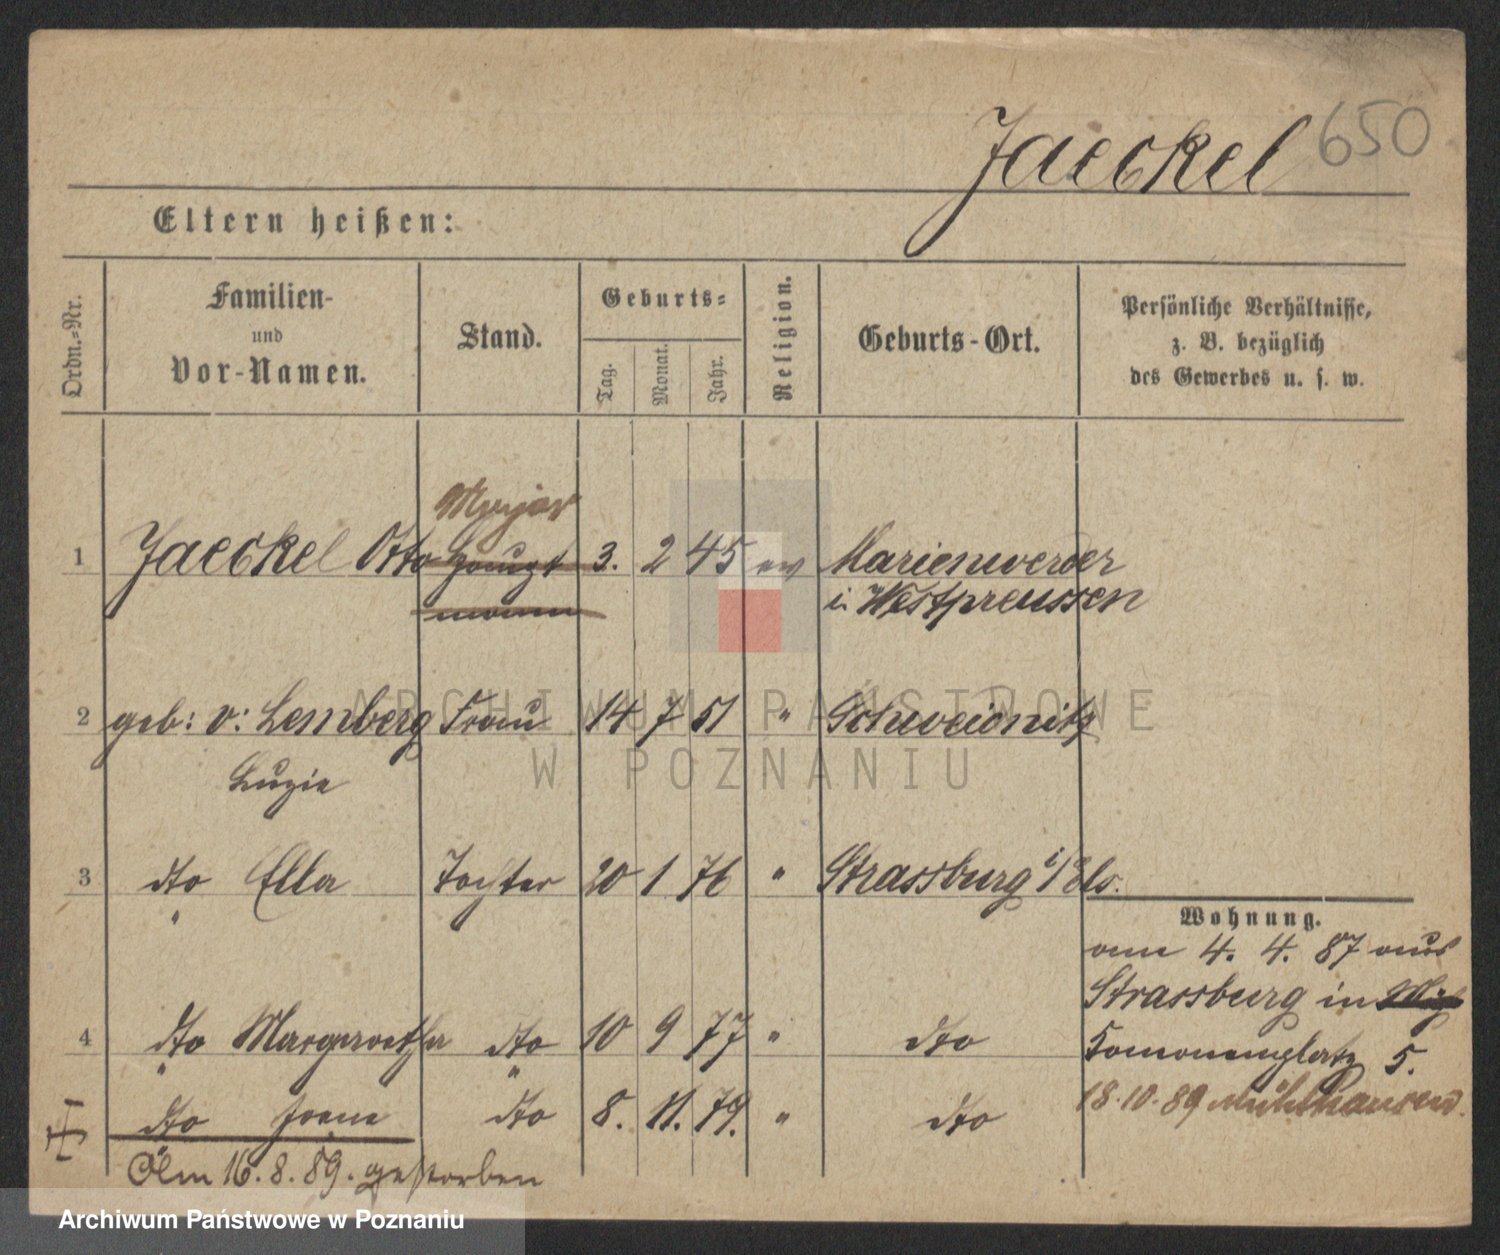 Jaeckel 650
Eltern heißen:
Ordn.-Nr.
Familien-
und
Vor-Namen.
Stand.
Geburts-
Tag.
Monat.
Jahr.
Religion.
Geburts-Ort.
Persönliche Verhältnisse,
z. B. bezüglich
des Gewerbes u. s. w.
Major
1 Jaeckel Otto Haupt 3. 2 45 ev Marienwerder
mann i. Westpreussen
2 geb: v: Lemberg Frau 14 7 51 " Schweidnitz
Luzie
3 dto Ella Tochter 20 1 76 " Strassburg i/Els.
"
Wohnung.
am 4. 4. 87 aus
Strassburg in
4 dto Margarethe dto 10 9 77 " dto
" "
5.
dto Irene dto 8. 11. 79. " dto
18.10.89 Mühlhausen.
Am 16.8.89. gestorben
ARCHIWUM PAŃSTWOWE
W POZNANIU
Archiwum Państwowe w Poznaniu